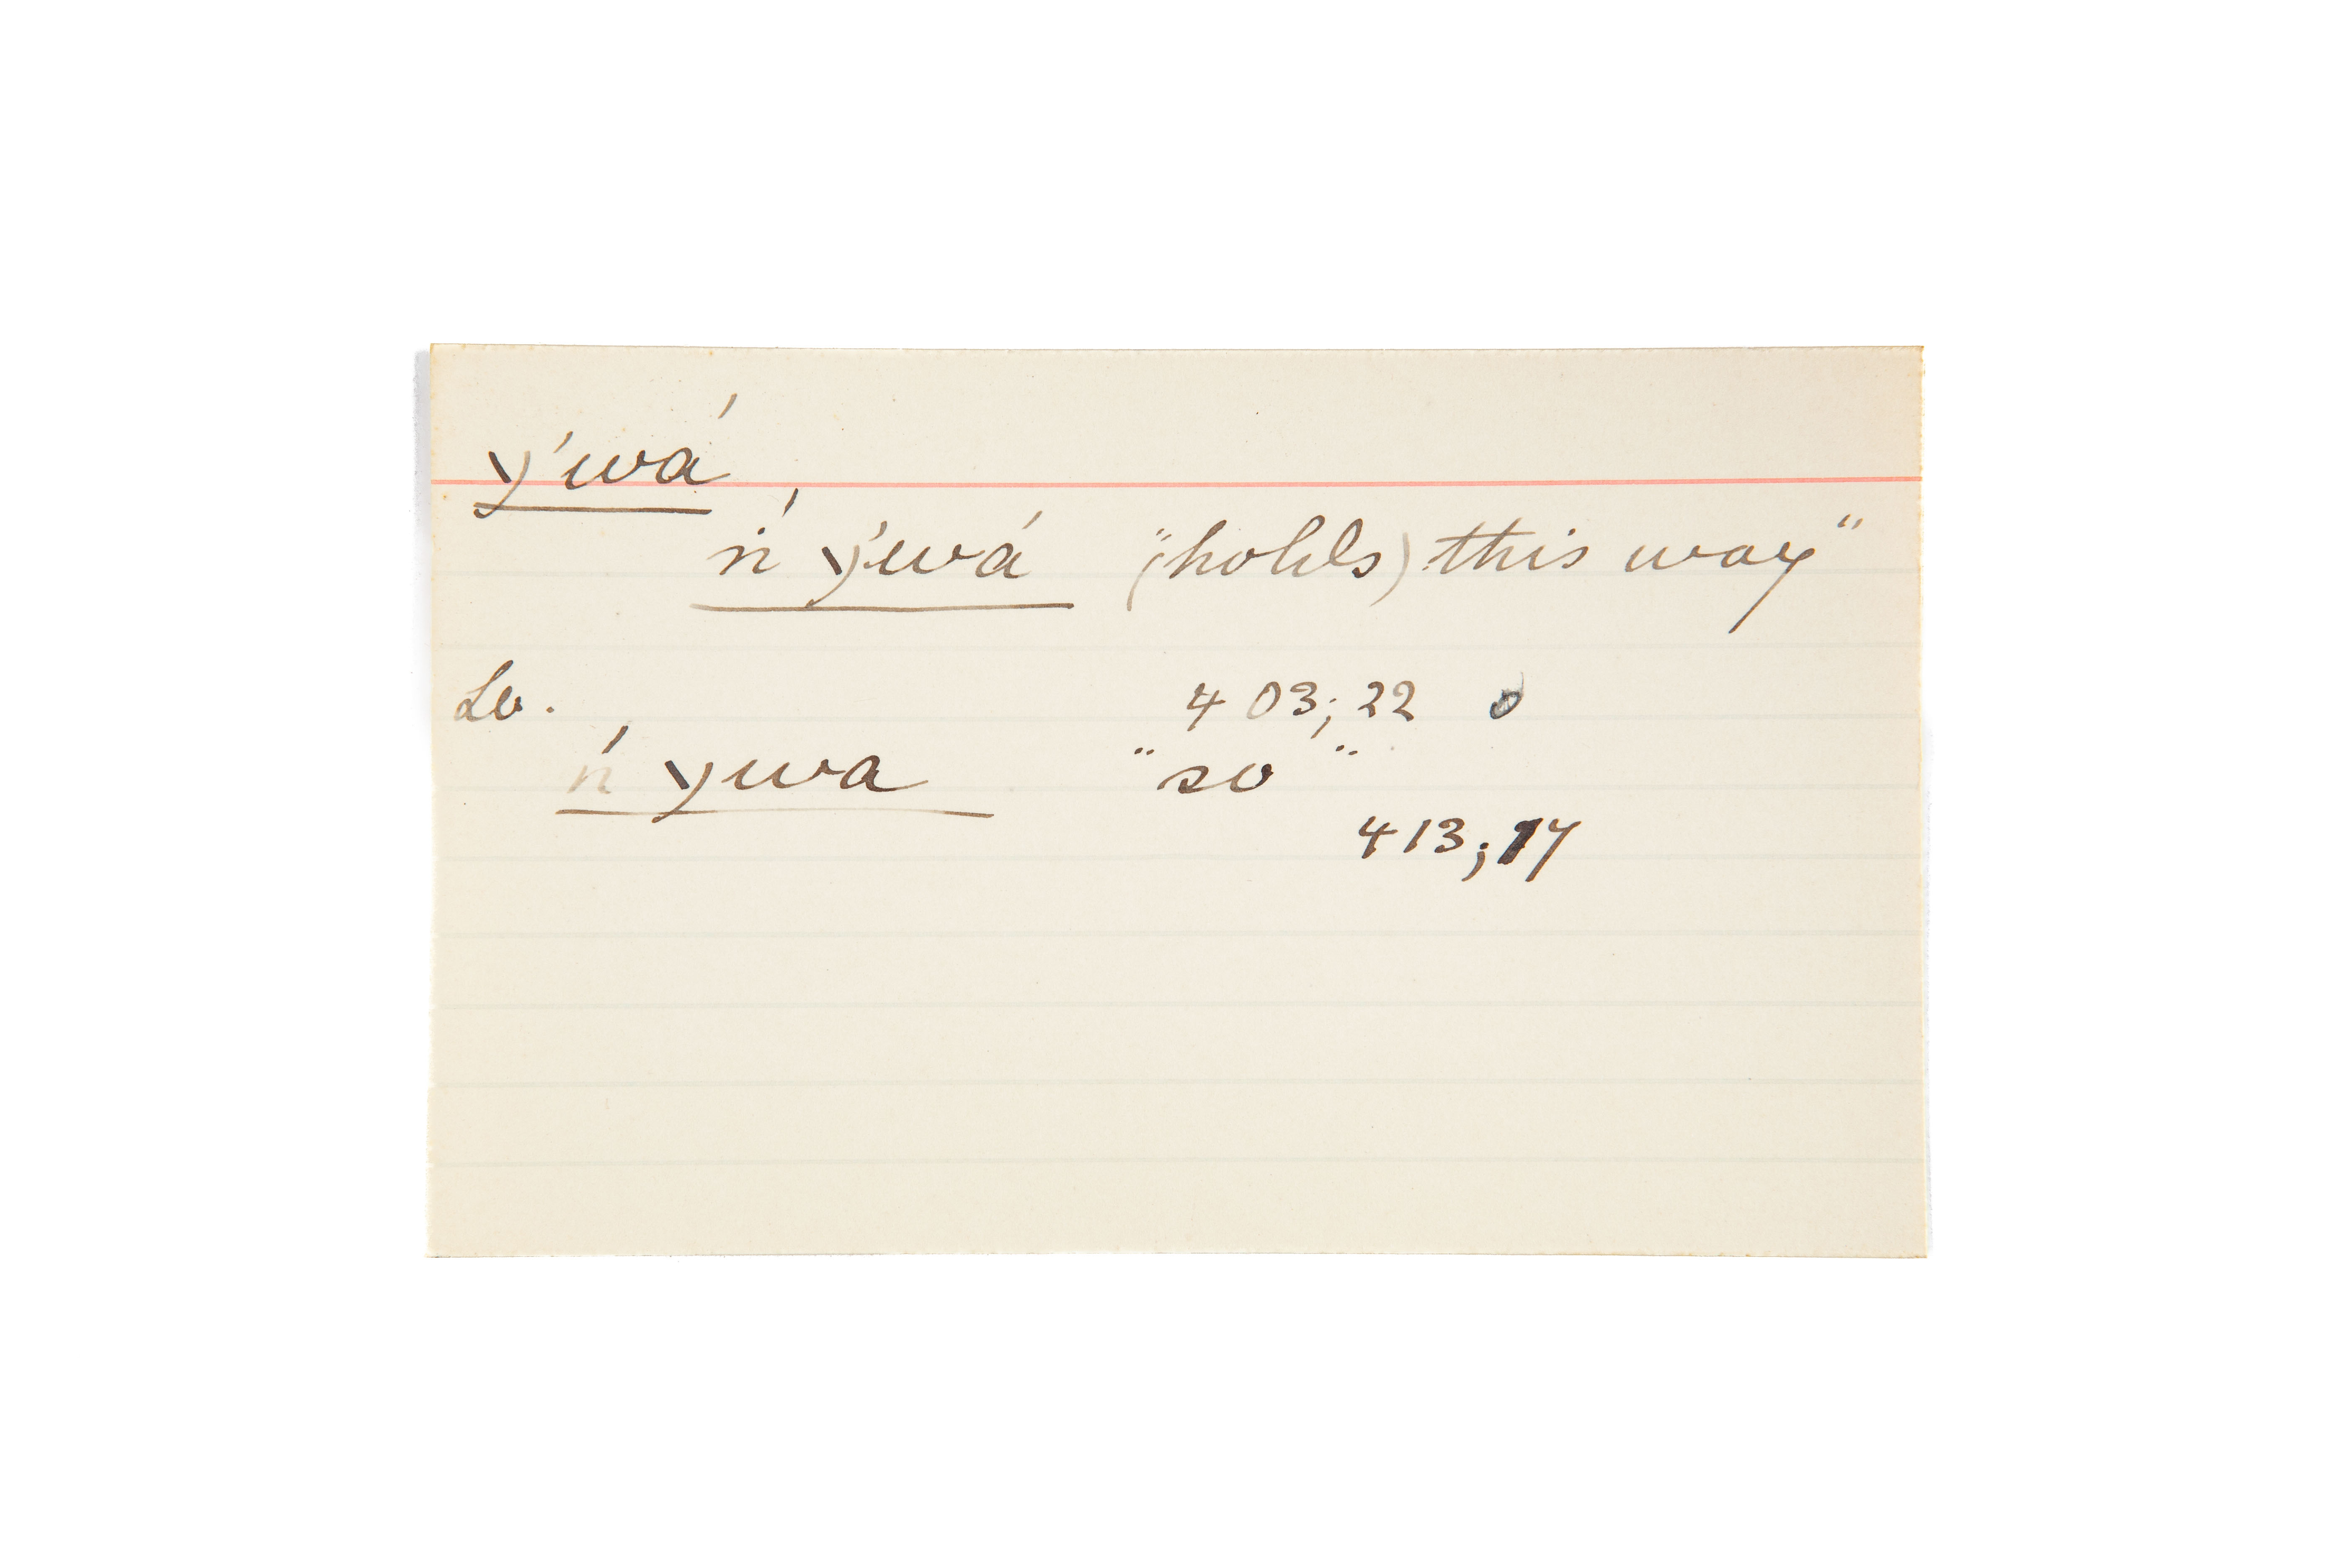 y'wá'
ń' y'wá' "(holds) this way"
Lo. 403;22 o
ń' ywa "so"
413;17